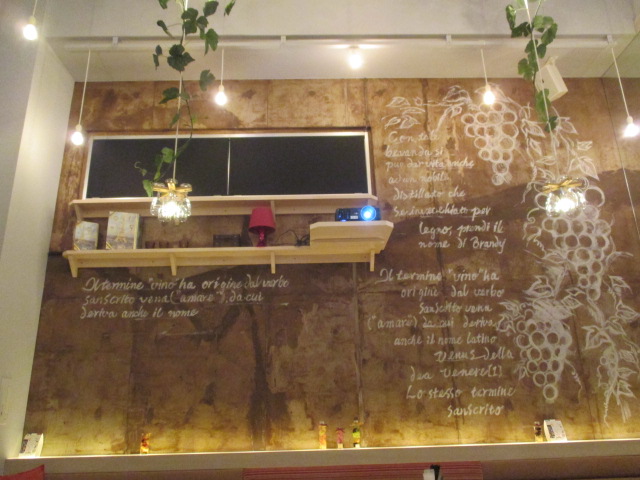 Con tale
bevanda si
può dar vita anche
ad un nobile
distillato che
se invecchiato per
legno, prendi il
nome di Brandy
Il termine "vino" ha origine dal verbo
sanscrito vena ("amare"), da cui
deriva anche il nome
Il termine "vino" ha
origine dal verbo
sanscrito vena
("amare") da cui deriva
anche il nome latino
Venus della
dea Venere(1)
Lo stesso termine
sanscrito